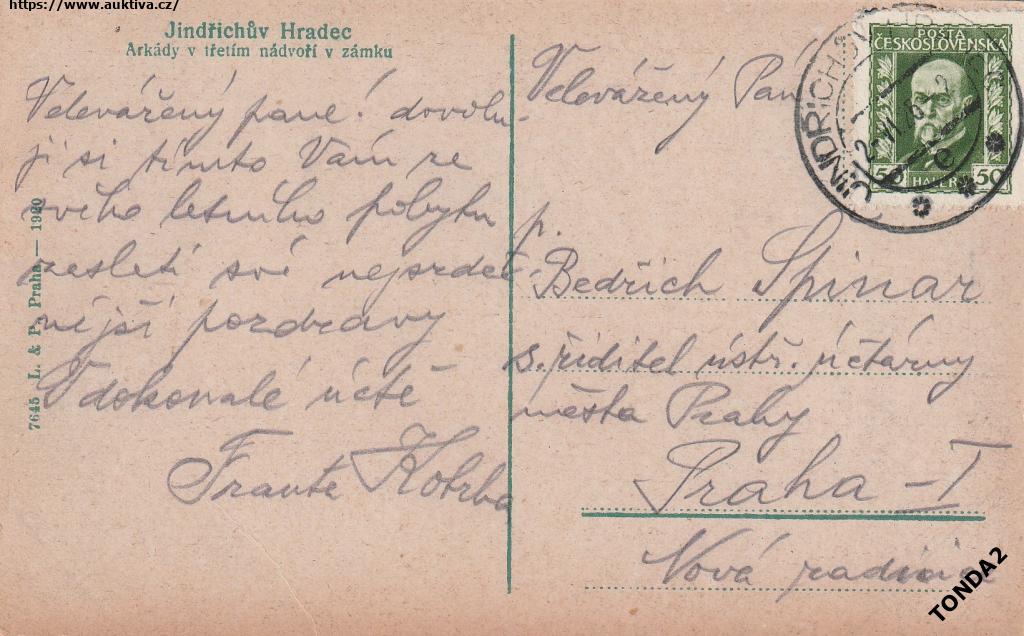 https://www.auktiva.cz/
Jindřichův Hradec
Arkády v třetím nádvoří v zámku
Velevážený pane! dovolu-
ji si tímto Vám ze
svého letního pobytu
zeslati své nejsrdeč-
nější pozdravy
V dokonalé úctě
Kotrba
7645 L. & P. Praha — 1920
Velevážený Pán
p.
Bedřich Spinar
s. řiditel ústř. účtárny
města Prahy
Praha - I
Nová radnice
POŠTA
ČESKOSLOVENSKÁ
50 HALÉŘŮ 50
JINDŘICHŮV HRADEC
TONDA2